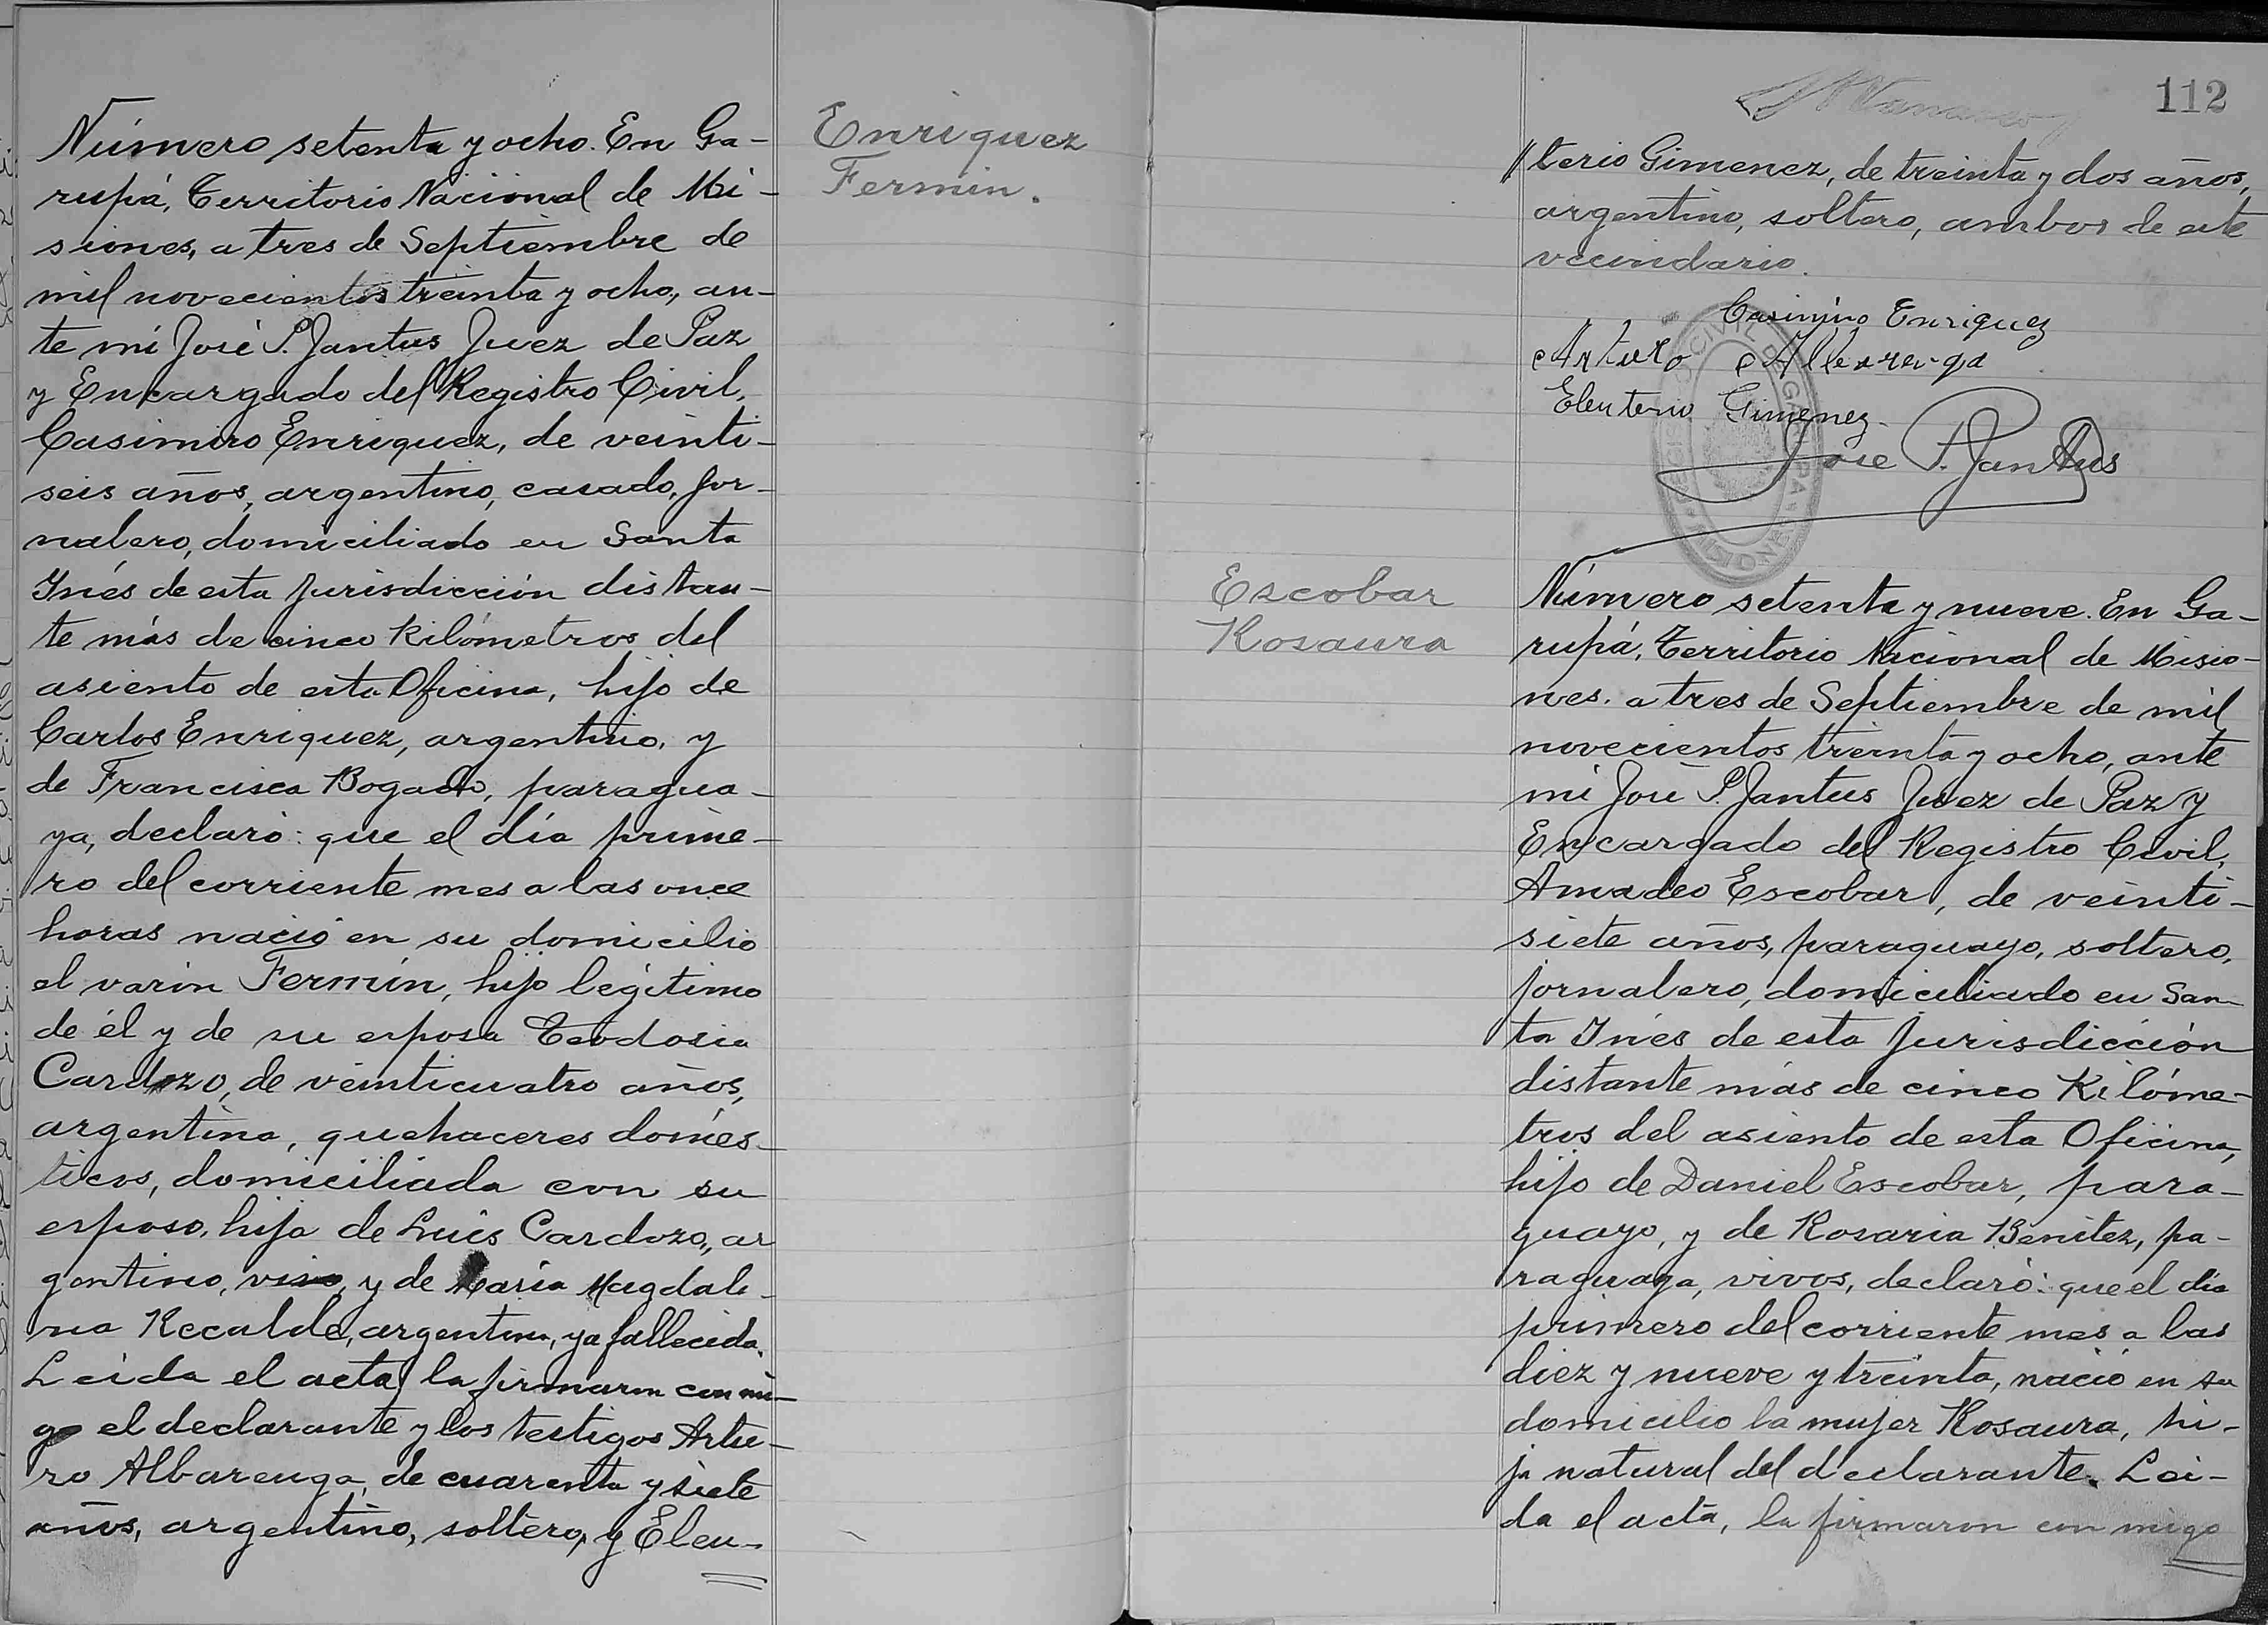 Número setenta y ocho. En Ga-
rupá, Territorio Nacional de Mi-
siones, a tres de Septiembre de
mil novecientos treinta y ocho, an-
te mi José P. Jantus Juez de Paz
y Encargado del Registro Civil,
Casimiro Enriquez, de veinti-
seis años, argentino, casado, jor-
nalero, domiciliado en Santa
Inés de esta jurisdicción distan-
te más de cinco kilómetros del
asiento de esta Oficina, hijo de
Carlos Enriquez, argentino, y
de Francisca Bogado, paragua-
ya, declaró: que el día prime-
ro del corriente mes a las once
horas nació en su domicilio
el varón Fermín, hijo legítimo
de él y de su esposa Teodosia
Cardozo, de veinticuatro años,
argentina, quehaceres domés-
ticos, domiciliada con su
esposo, hija de Luis Cardozo, ar
gentino, vivo, y de María Magdale-
na Recalde, argentina, ya fallecida.
Leída el acta, la firmaron con mi-
go el declarante y los testigos Artu-
ro Albarenga, de cuarenta y siete
años, argentino, soltero, y Eleu-
Enriquez
Fermin.
112
//terio Gimenez, de treinta y dos años,
argentino, soltero, ambos de este
vecindario.
Casimiro Enriquez
Arturo Albarenga
Eleuterio Gimenez.
Jose P. Jantus
Escobar
Rosaura
Número setenta y nueve. En Ga-
rupá, Territorio Nacional de Misio-
nes. a tres de Septiembre de mil
novecientos treinta y ocho, ante
mi José P. Jantus Juez de Paz y
Encargado del Registro Civil,
Amadeo Escobar, de veinti-
siete años, paraguayo, soltero,
jornalero, domiciliado en San-
ta Inés de esta jurisdicción
distante más de cinco Kilóme-
tros del asiento de esta Oficina,
hijo de Daniel Escobar, para-
guayo, y de Rosaria Benitez, pa-
raguaya, vivos, declaró: que el día
primero del corriente mes a las
diez y nueve y treinta, nació en su
domicilio la mujer Rosaura, hi-
ja natural del declarante. Leí-
da el acta, la firmaron con migo